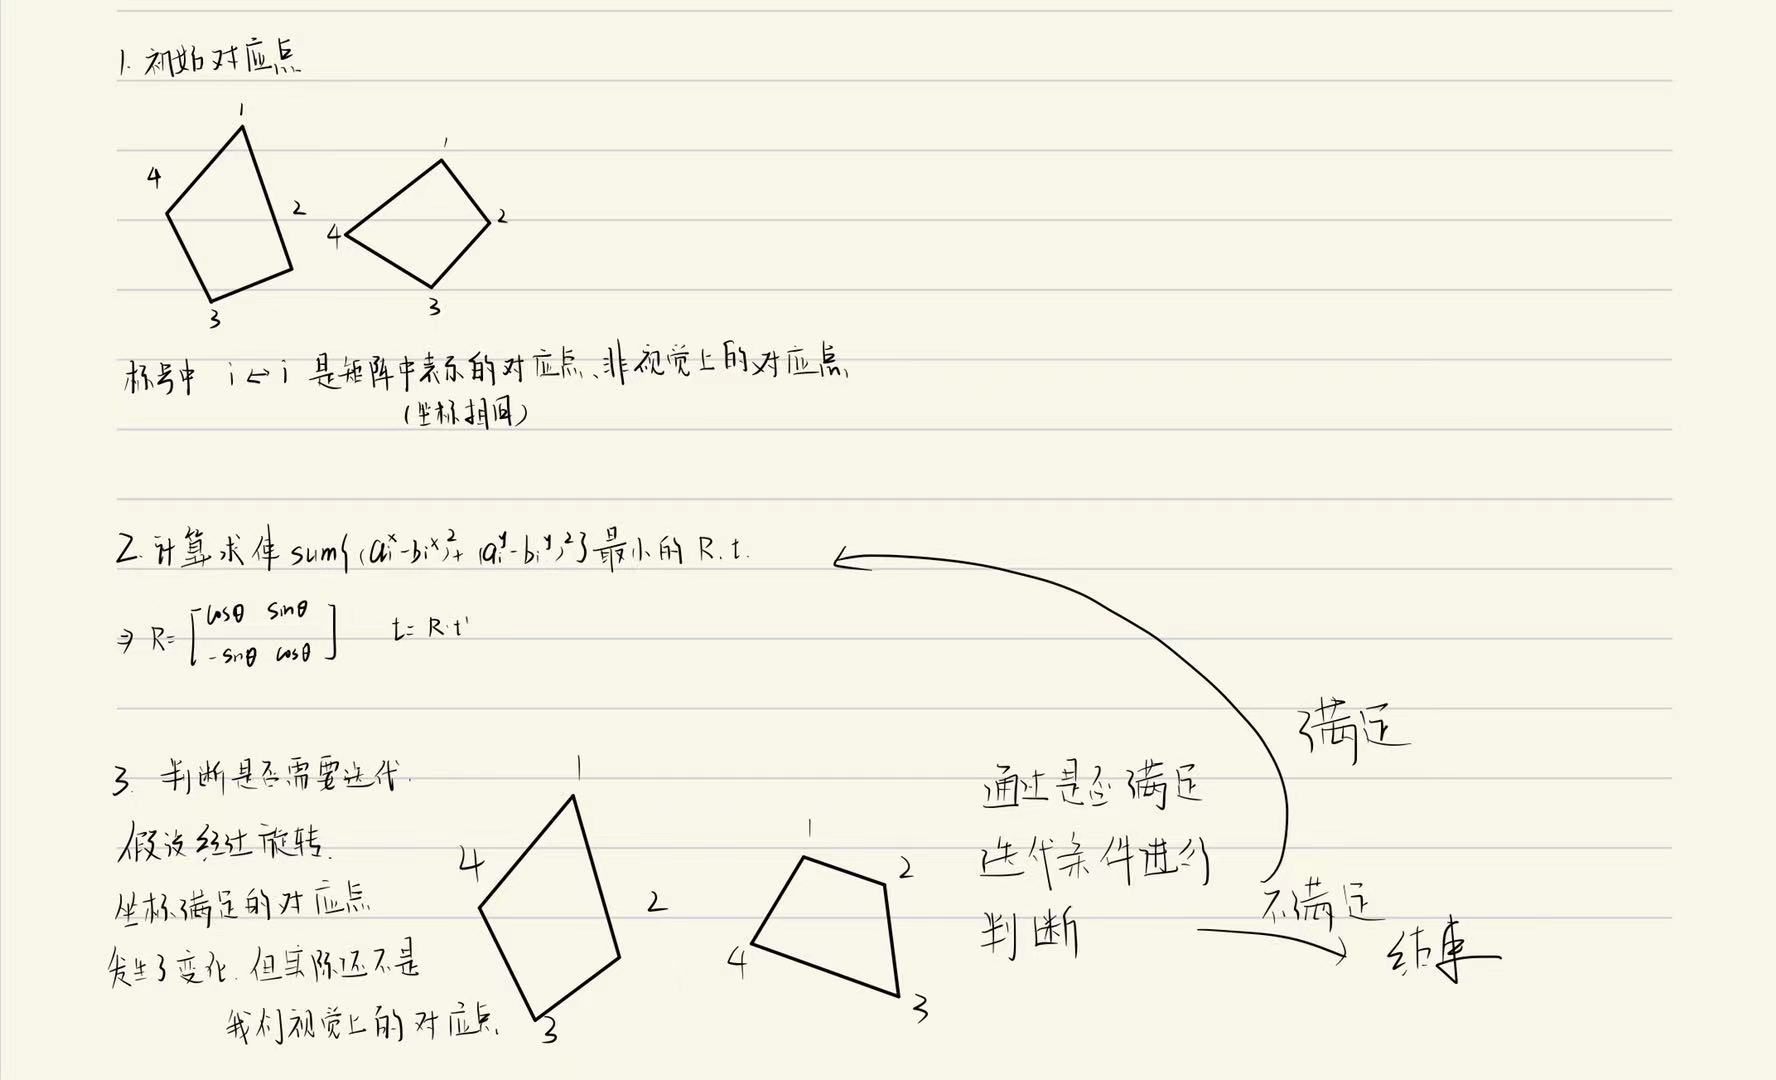 1. 初始对应点
1
4
2
3
1
2
4
3
标号中 i↔i 是矩阵中表示的对应点、非视觉上的对应点
(坐标相同)
2. 计算求使 sum{(aᵢˣ-bᵢˣ)²+(aᵢʸ-bᵢʸ)²}最小的 R.t.
⇒ R= [cosθ sinθ t= R·t'
-sinθ cosθ]
满足
3. 判断是否需要迭代.
假设经过旋转.
坐标满足的对应点
发生了变化.但实际还不是
我们视觉上的对应点.
1
4
2
3
1
2
4
3
通过是否满足
迭代条件进行
判断
不满足
结束